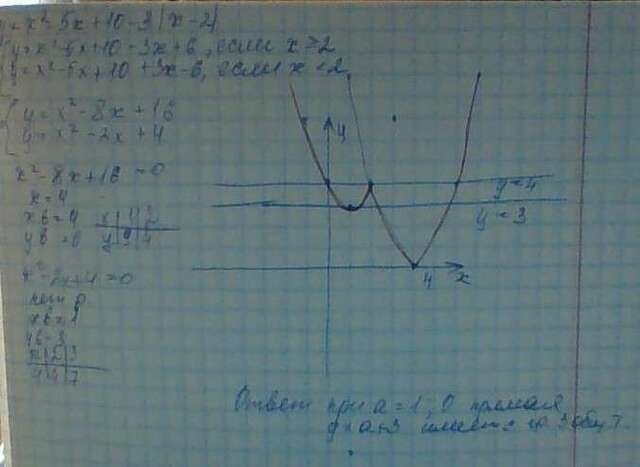 y = x² - 5x + 10 - 3|x - 2|
y = x² - 5x + 10 - 3x + 6, если x ≥ 2
y = x² - 5x + 10 + 3x - 6, если x < 2
y = x² - 8x + 16
y = x² - 2x + 4
x² - 8x + 16 = 0
x = 4
xв = 4
yв = 0
x 1 2
y 9 4
x² - 2x + 4 = 0
нет
xв = 1
yв = 3
x 2 3
y 4 7
y
y = 4
y = 3
4 x
Ответ при a = 1; 0 прямая
y = a + 3 имеет с гр. 3 общ. т.